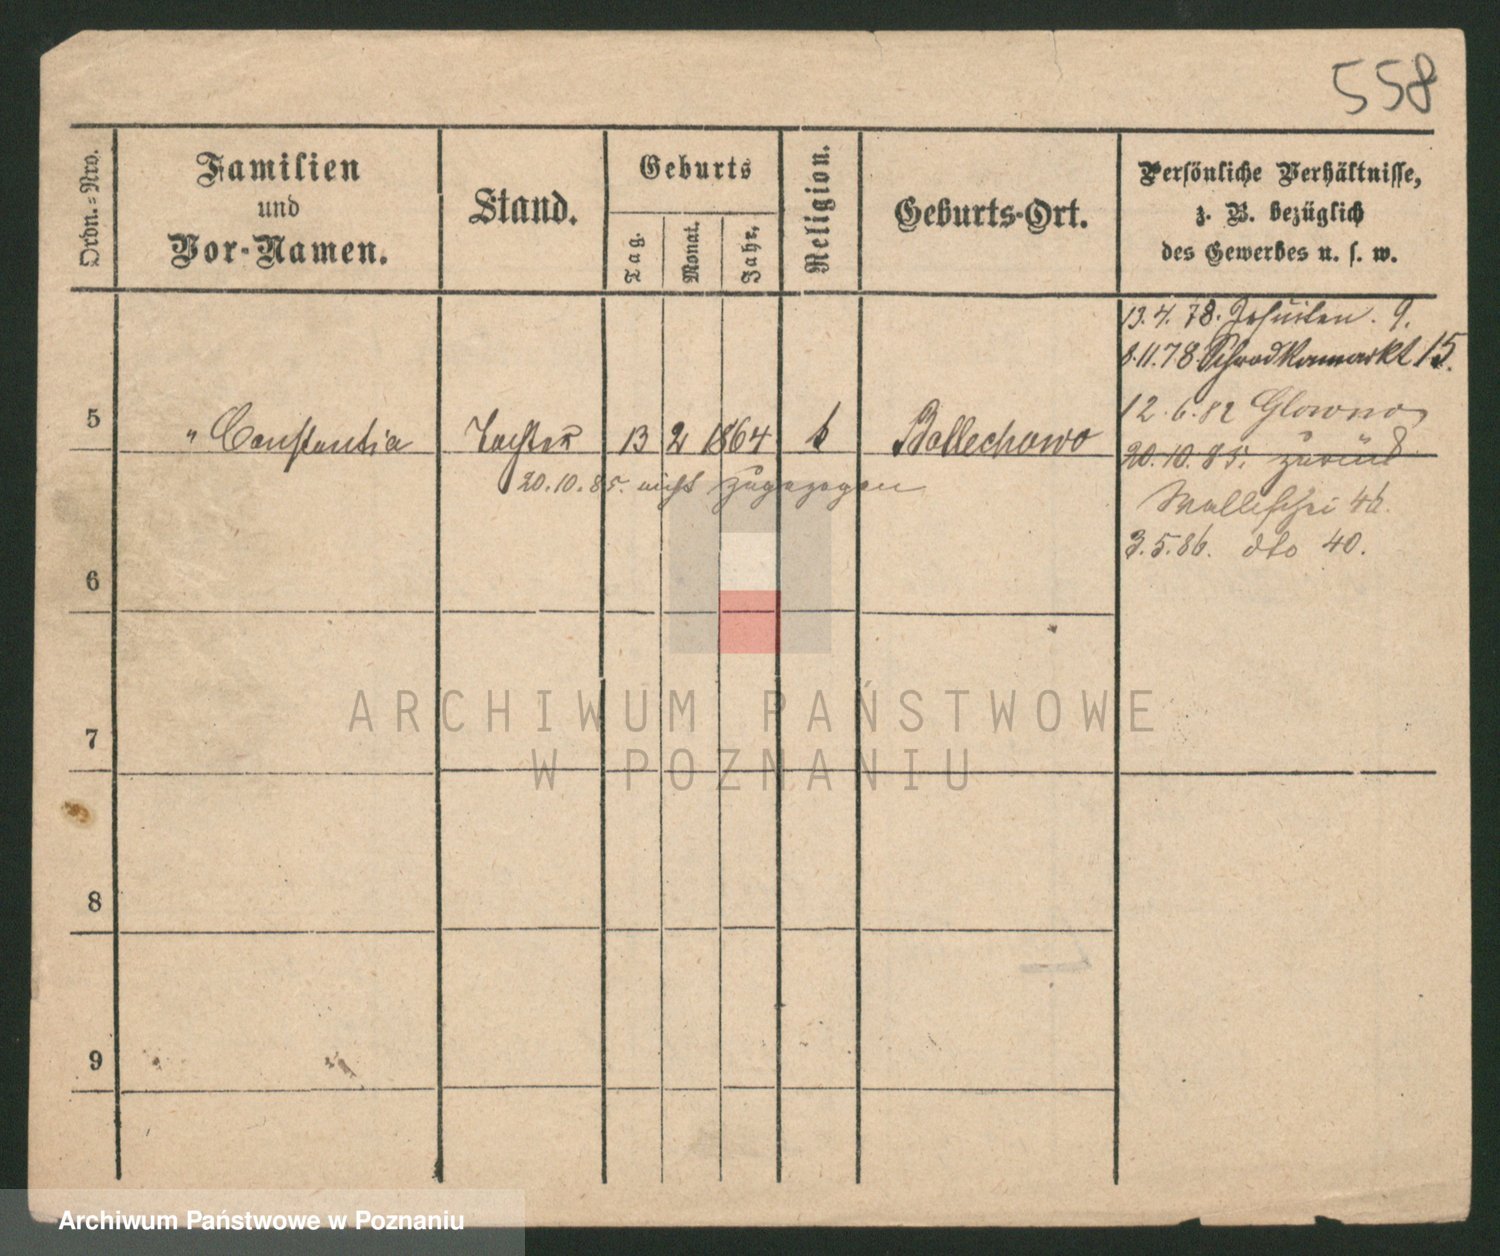 558
Ordn.-Nro.
Familien
und
Vor-Namen.
Stand.
Geburts
Tag.
Monat.
Jahr.
Religion.
Geburts-Ort.
Persönliche Verhältnisse,
z. B. bezüglich
des Gewerbes u. s. w.
13.4.78. Jesuiten. 9.
8.11.78 Schrodkamarkt 15.
12.6.82 Glowno
20.10.85. zurück
Wallischei 46.
3.5.86. dto 40.
5 " Constantia Tochter 13 2 1864 k Bollechowo
20.10.85. nicht zugezogen
6
7
8
9
ARCHIWUM PAŃSTWOWE
W POZNANIU
Archiwum Państwowe w Poznaniu